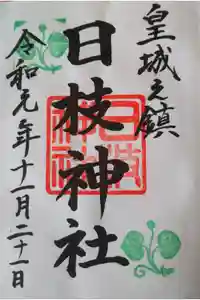 皇城之鎮
日枝神社
令和元年十一月二十一日
日枝神社